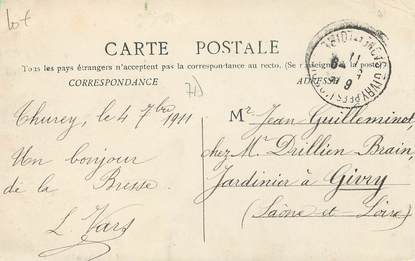 CARTE POSTALE
Tous les pays étrangers n'acceptent pas la correspondance au recto. (Se renseigner à la poste)
CORRESPONDANCE
ADRESSE
Thurey, le 4 7bre 1911
Un bonjour
de la Bresse.
L. Vars
Mr Jean Guilleminot
chez Mr Drillien Brain,
Jardinier à Givry
(Saône-et-Loire)